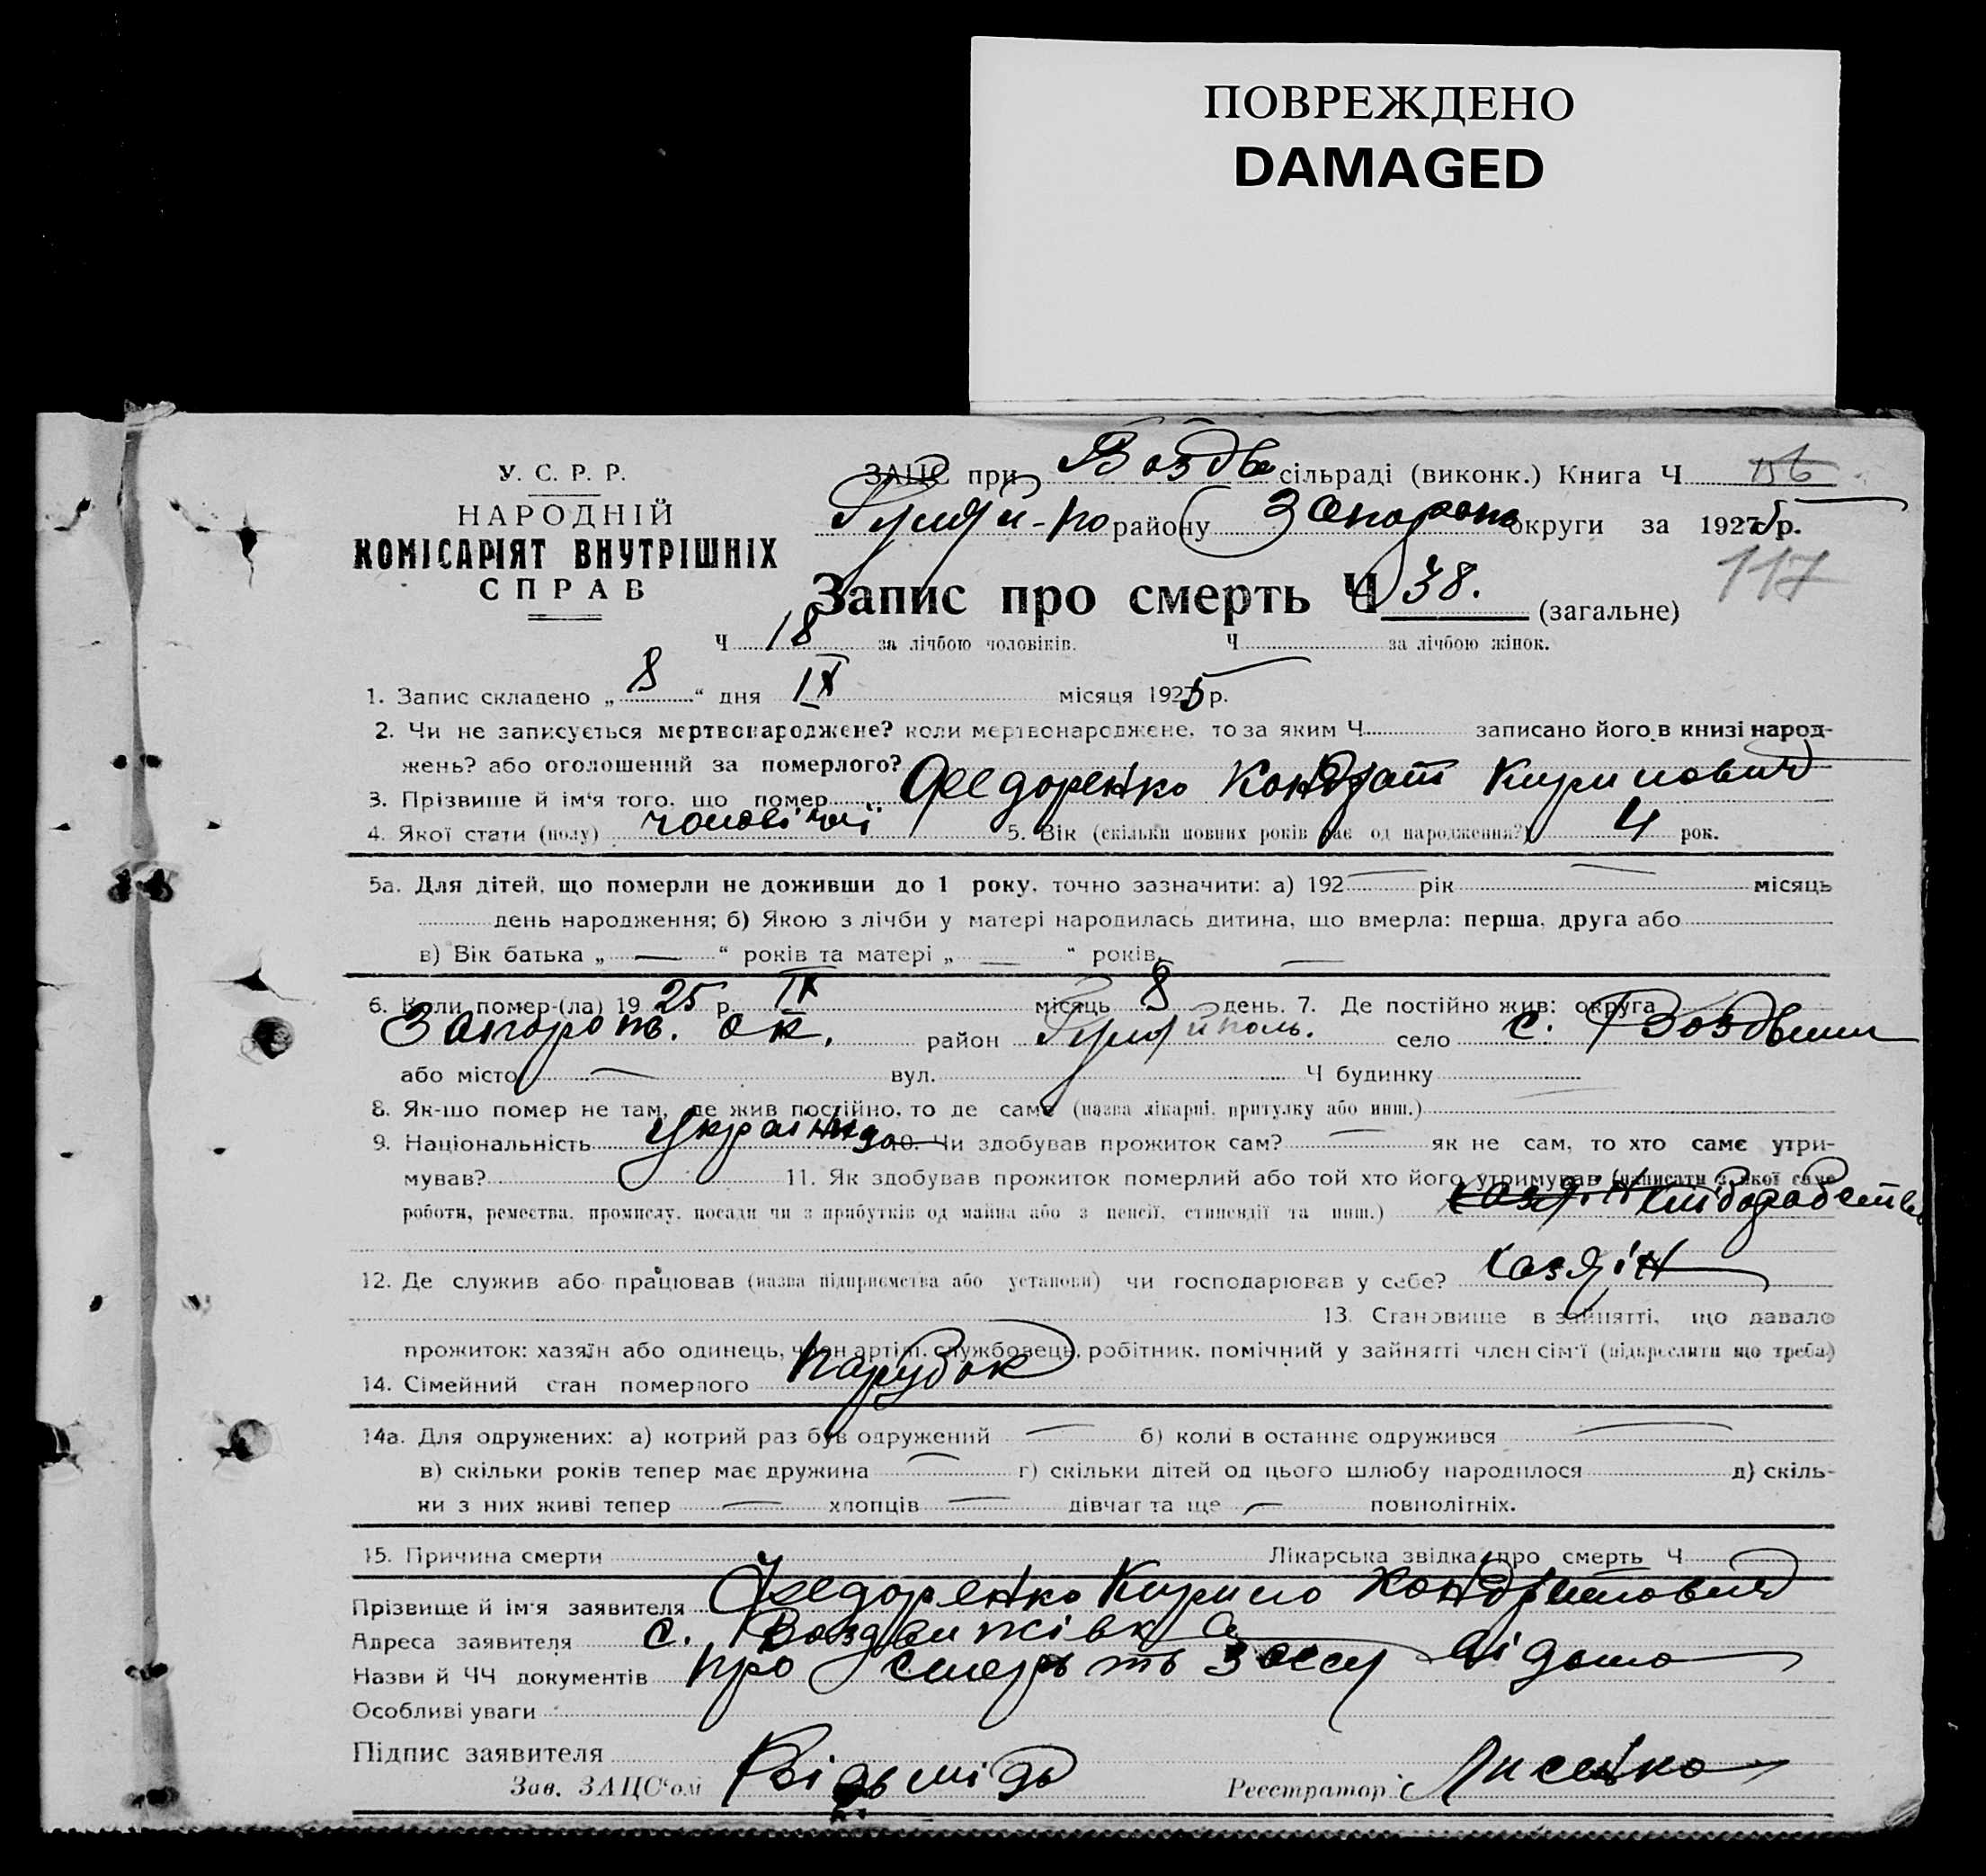 ПОВРЕЖДЕНО
DAMAGED
У. С. Р. Р.
НАРОДНІЙ
КОМІСАРІЯТ ВНУТРІШНІХ
СПРАВ
ЗАЦС при Воздв сільраді (виконк.) Книга Ч 156
району Запоріз округи за 1925 р.
117
Запис про смерть Ч 38. (загальне)
Ч 18 за лічбою чоловіків. Ч за лічбою жінок.
1. Запис складено „ 8 “ дня IX місяця 1925 р.
2. Чи не записується мертвонароджене? коли мертвонароджене, то за яким Ч записано його в книзі народ-
жень? або оголошений за померлого?
3. Прізвище й ім‘я того, що помер Федоренко Кондрат Кирилович
4. Якої стати (полу) чоловічої 5. Вік (скільки повних років має од народження?) 4 рок.
5а. Для дітей, що померли не доживши до 1 року, точно зазначити: а) 192 — рік — місяць
день народження; б) Якою з лічби у матері народилась дитина, що вмерла: перша, друга або
в) Вік батька „ — “ років та матері „ — “ років. —
6. Коли помер-(ла) 19 25 р. IX місяць 8 день. 7. Де постійно жив: округа
Запоріз. ок. район Гуляйполь. село с. Воздвиж
або місто — вул. Ч будинку
8. Як-що помер не там, де жив постійно, то де саме (назва лікарні, притулку або инш.)
9. Національність 10. Чи здобував прожиток сам? — як не сам, то хто саме утри-
мував? 11. Як здобував прожиток померлий або той хто його утримував (написати з якої саме
роботи, ремества, промислу, посади чи з прибутків од майна або з пенсії, стипендії та инш.) хазяїн хліборобство
12. Де служив або працював (назва підприємства або установи) чи господарював у себе? хазяїн
13. Становище в зайнятті, що давало
прожиток: хазяїн або одинець, член артілі, службовець, робітник, помічний у зайнятті член сім‘ї (підкреслити що треба)
14. Сімейний стан померлого парубок
14а. Для одружених: а) котрий раз був одружений — б) коли в останнє одружився —
в) скільки років тепер має дружина — г) скільки дітей од цього шлюбу народилося д) скіль-
ки з них живі тепер — хлопців — дівчат та ще — повнолітніх.
15. Причина смерти Лікарська звідка про смерть Ч
Прізвище й ім‘я заявителя Федоренко Кирило Кондратович
Адреса заявителя с. Воздвижівка
Назви й ЧЧ документів про смерть загсу відомо
Особливі уваги
Підпис заявителя
Зав. ЗАЦС‘ом Реєстратор Лисенко